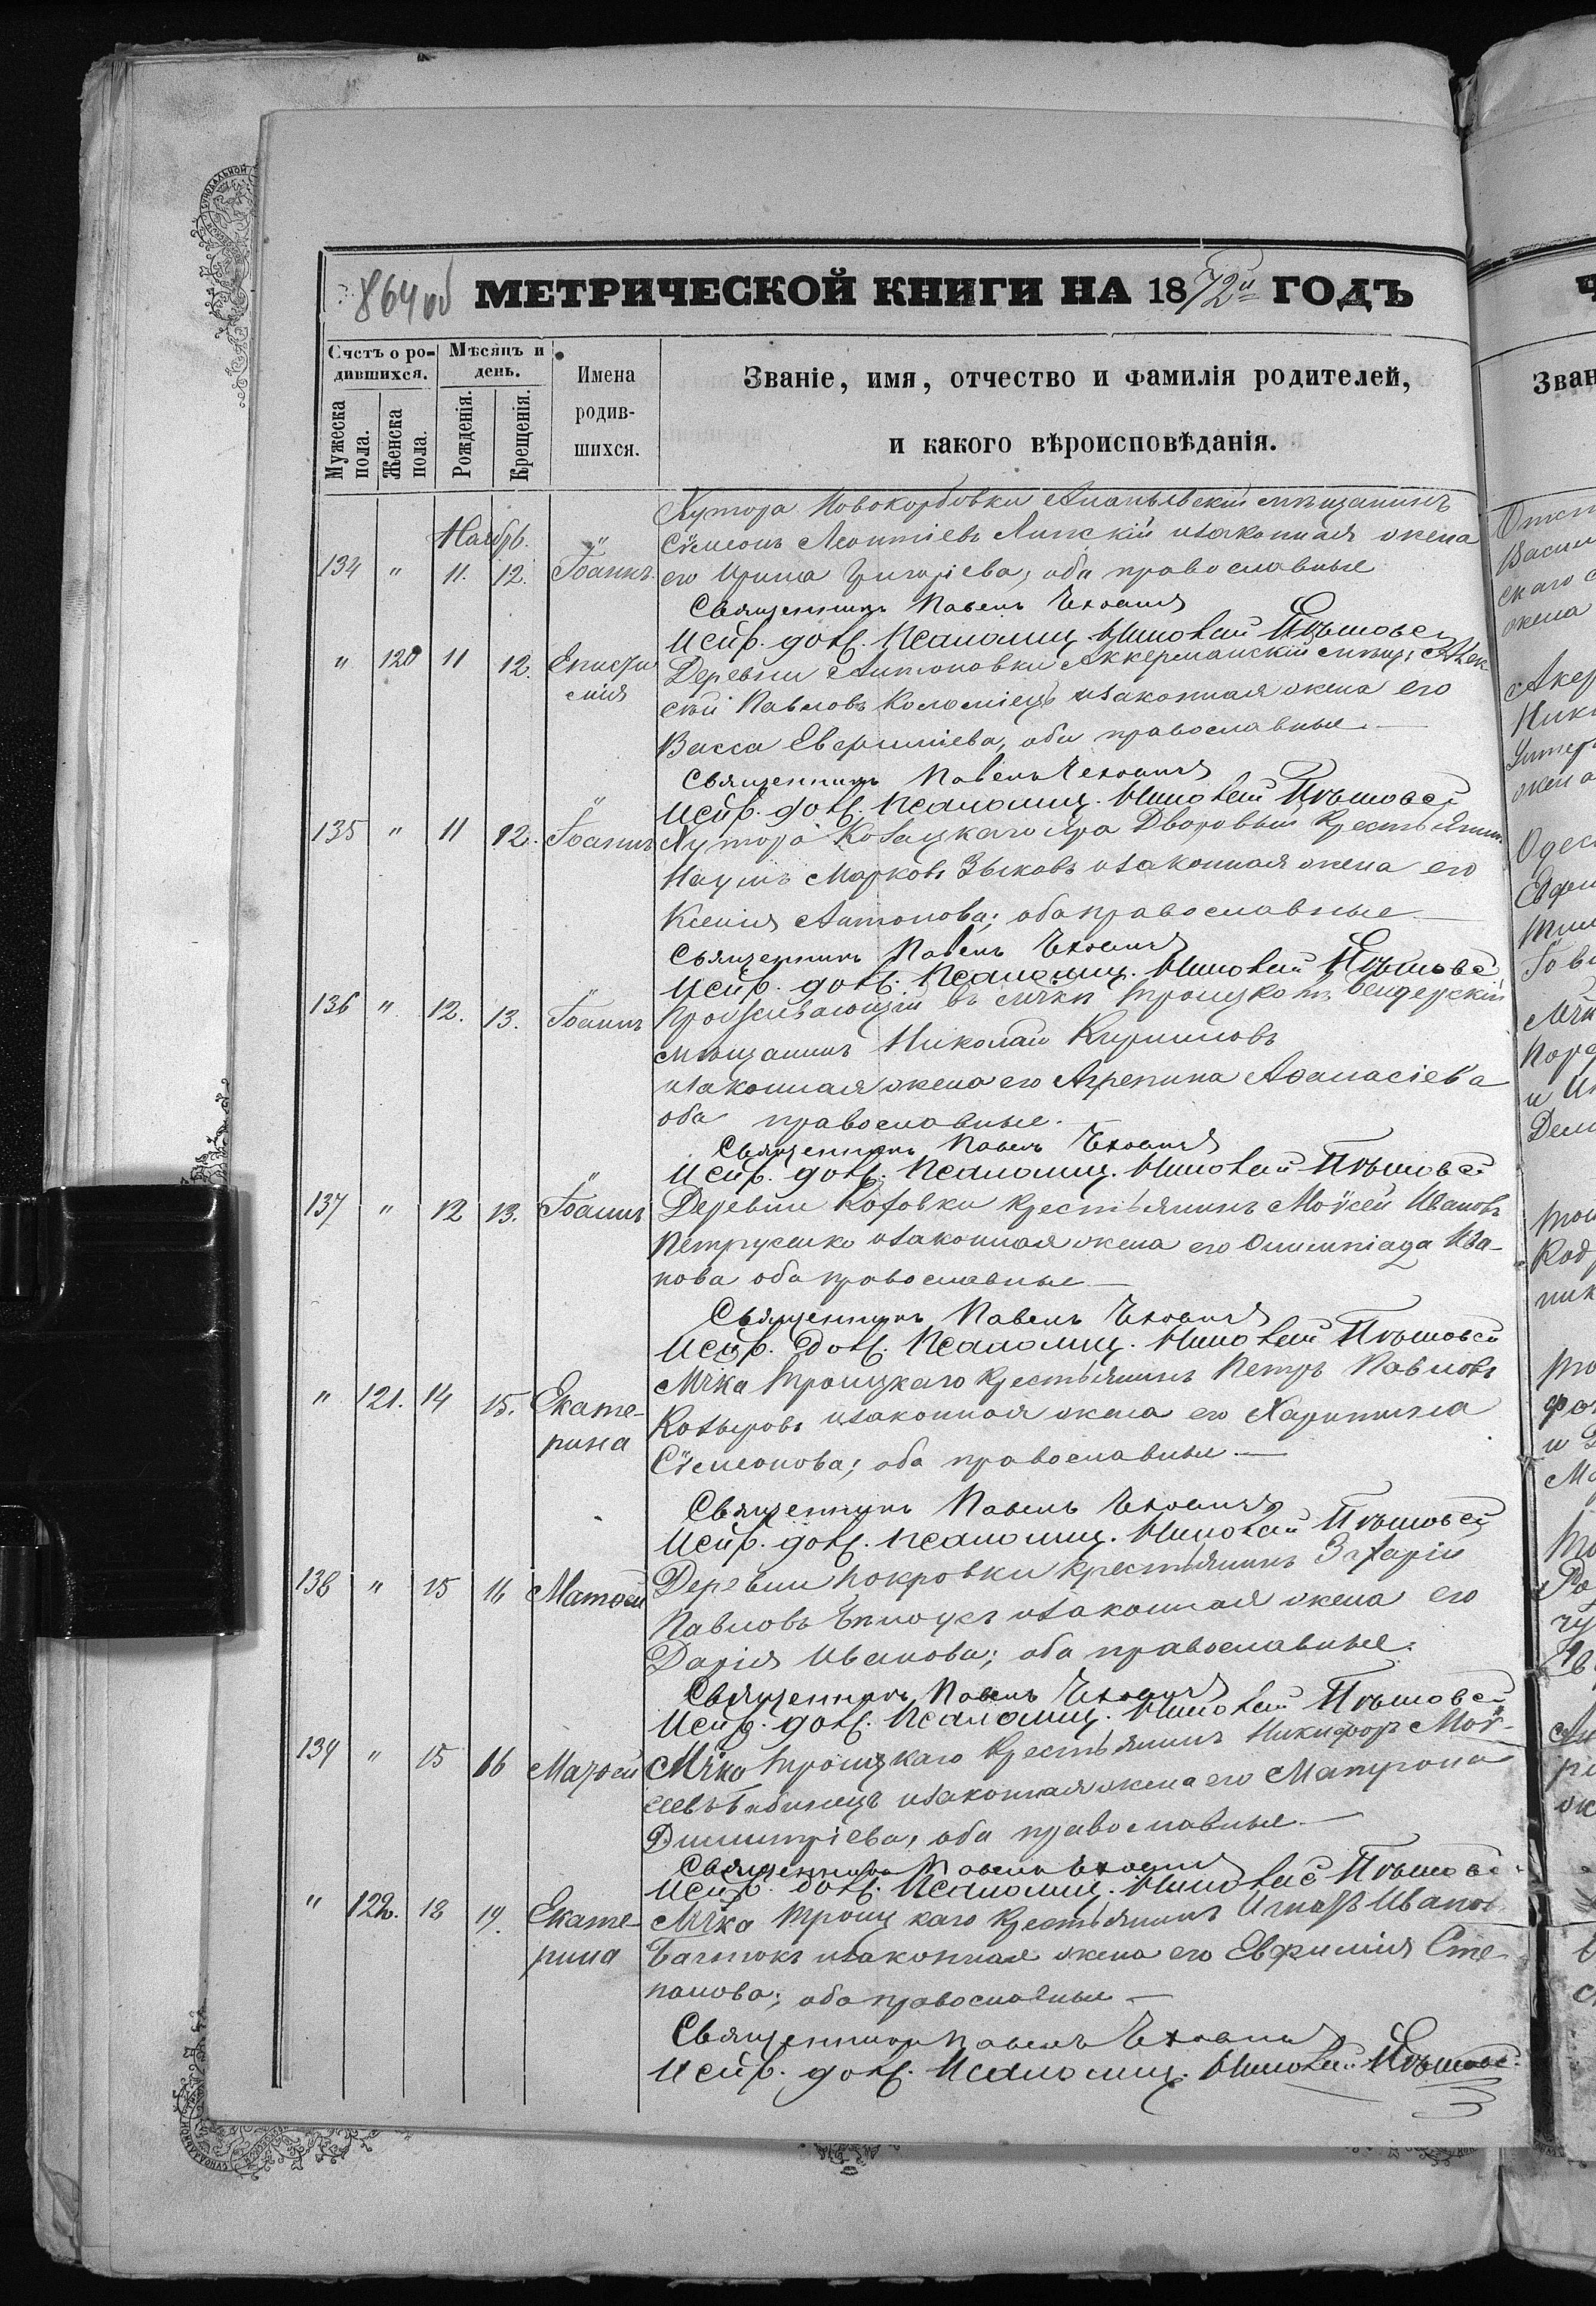 864 об МЕТРИЧЕСКОЙ КНИГИ НА 1872й ГОДЪ
Счетъ о ро-
дившихся.
Мѣсяцъ и
день.
Мужеска
пола.
Женска
пола.
Рожденія.
Крещенія.
Имена
родив-
шихся.
Званіе, имя, отчество и фамилія родителей,
и какого вѣроисповѣданія.
Хутора Новокорбовки Ананьевскій мѣщанинъ
Ноябрь. Сѵмеонъ Леонтіевъ Липскій и законная жена
134 " 11. 12. Іоаннъ его Ирина Григорієва, оба православные
Священникъ Павелъ
Испр. долж. Псаломщ. Николай
" 120 11 12. Еписти Деревни Антоновки Аккерманскій мѣщ: Алек
мія сѣй Павловъ Коломіецъ и законная жена его
Васса Евфиміева, оба православные —
Священникъ Павелъ
Испр. долж. Псаломщ. Николай
135 " 11 12. Іоаннъ Хутора Козацкаго Яра Дворовый Крестьянин.
Наумъ Марковъ Зыковъ и законная жена его
Ксенія Антонова; оба православные —
Священникъ Павелъ
Испр. долж. Псаломщ. Николай
136 " 12. 13. Іоаннъ Проживающій въ мѣчкѣ Троицкомъ Бендерскій
мѣщанинъ Николай Кириловъ
и законная жена его Агрепина Аѳанасіева
оба православные.
Священникъ Павелъ
Испр. долж. Псаломщ. Николай
137 " 12 13. Іоаннъ Деревни Кофовки Крестьянинъ Моѵсей Ивановъ
Петрусенко и законная жена его Олимпіада Ива-
нова оба православные —
Священникъ Павелъ
Испр. долж. Псаломщ. Николай
" 121. 14 15. Екате- Мѣчка Троицкаго Крестьянинъ Петръ Павловъ
рина Козыровъ и законная жена его Харитина
Сѵмеонова; оба православные —
Священникъ Павелъ
Испр. долж. Псаломщ. Николай
138 " 15 16 Матѳей Деревни Покровки Крестьянинъ Захарій
Павловъ и законная жена его
Дарія Иванова; оба православные.
Священникъ Павелъ
Испр. долж. Псаломщ. Николай
139 " 15 16 Матѳей Мѣчка Троицкаго Крестьянинъ Никифоръ Моѵ-
сеевъ и законная жена его Матрона
Димитріева, оба православные —
Священникъ Павелъ
Испр. долж. Псаломщ. Николай
" 122. 18 19. Екате- Мѣчка Троицкаго Крестьянинъ Игнатъ Иванов
рина и законная жена его Евфимія Сте-
панова; оба православные —
Священникъ Павелъ
Испр. долж. Псаломщ. Николай